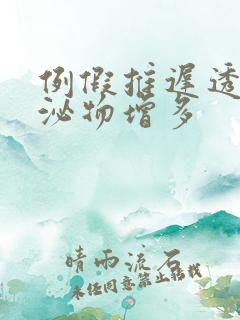 例假推迟透
泌物增多
晴雨流石
未经同意禁止转载